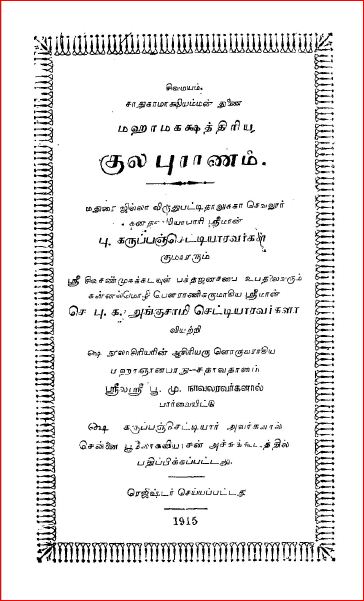 சிவமயம்.
சாதுகாமாக்ஷியம்மன் துணை
மஹாமகக்ஷத்திரிய
குல புராணம்.
மதுரை ஜில்லா விருதுபட்டி தாலுகா செவலூர்
ஸ்ரீமான்
பு. கருப்பஞ்செட்டியாரவர்கள்
குமாரரும்
ஸ்ரீ சிவசண்முகக்கடவுள் பக்தஜனசபை உபதிலவரும்
கன்னல்மொழி பௌராணிகருமாகிய ஸ்ரீமான்
செ. பு. க. அரங்குசாமி செட்டியாரவர்களா
லியற்றி
ஷை நூலாசிரியரின் ஆசிரியரு ளொருவராகிய
சதாவதானம்
ஸ்ரீலஸ்ரீ பூ. மு. நாவலரவர்களால்
பார்வையிட்டு
ஷை கருப்பஞ்செட்டியார் அவர்களால்
சென்னை பூலோகவியாசன் அச்சுக்கூடத்தில்
பதிப்பிக்கப்பட்டது.
ரெஜிஷ்டர் செய்யப்பட்டது
1915